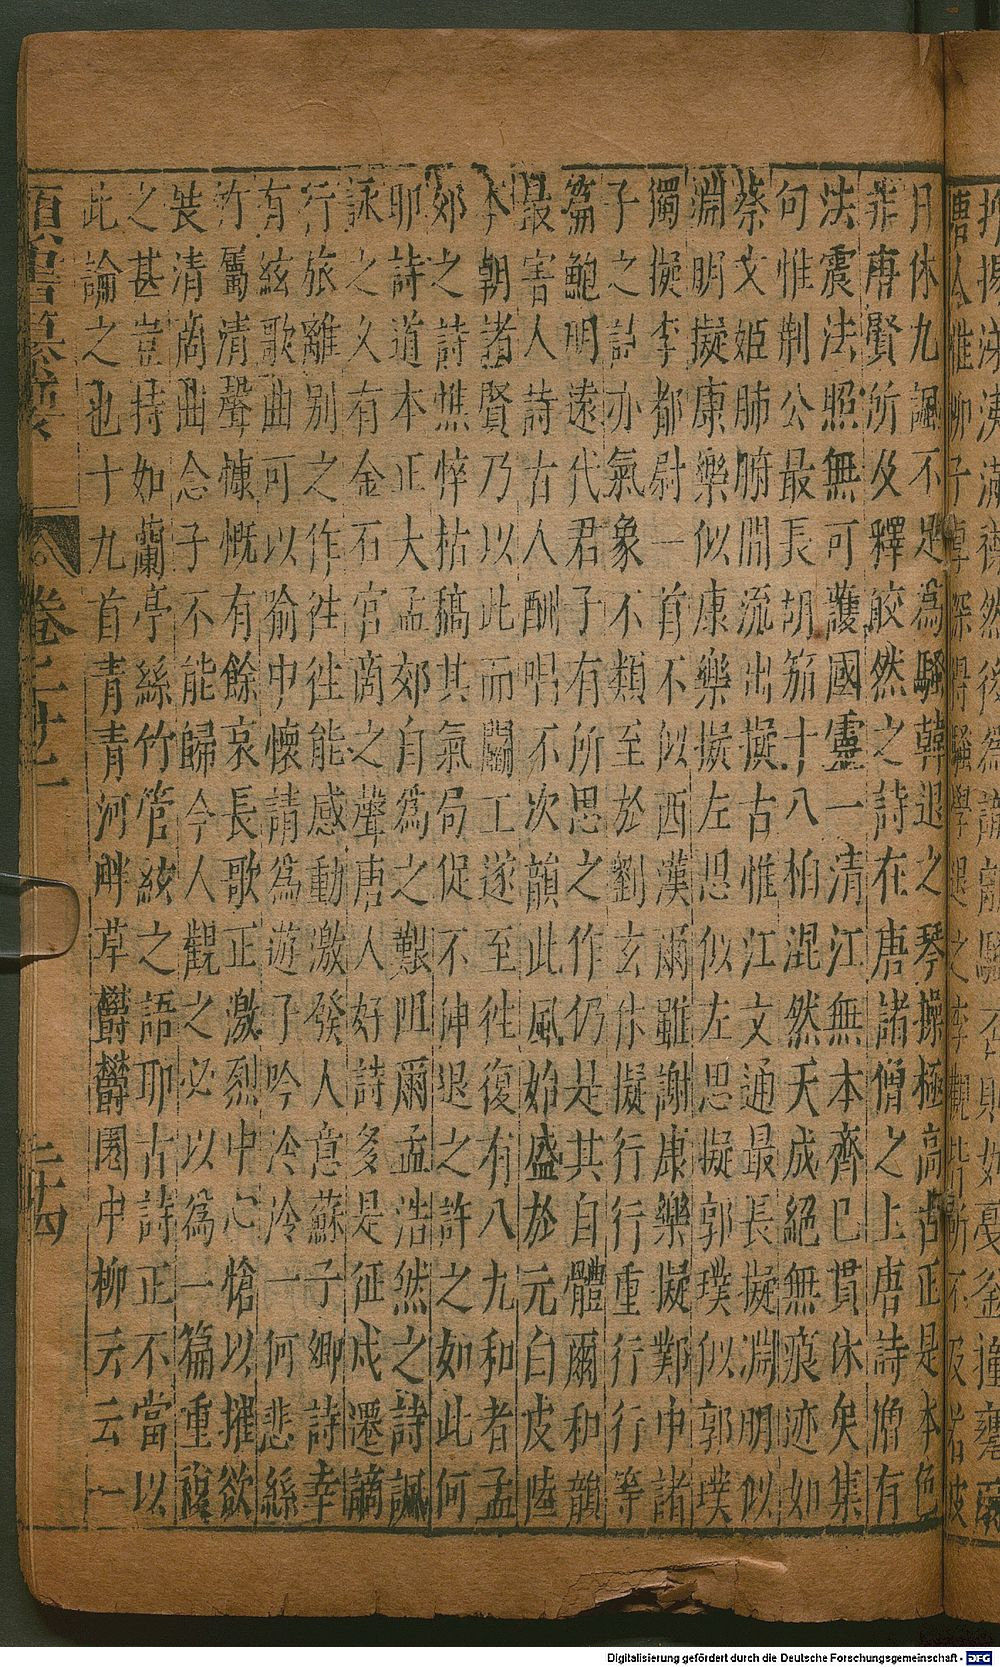 日休九諷不足為騷韓退之琴操極高古正是本色
非唐賢所及釋皎然之詩在唐諸僧之上唐詩僧有
法震法照無可護國靈一清江無本齊巳貫休矣集
句惟荊公最長胡笳十八拍混然天成絕無痕迹如
蔡文姬肺腑間流出擬古惟江文通最長擬淵明似
淵明擬康樂似康樂擬左思似左思擬郭璞似郭璞
獨擬李都尉一首不似西漢爾雖謝康樂擬鄴中諸
子之詩亦氣象不類至於劉玄休擬行行重行行等
篇鮑明遠代君子有所思之作仍是其自體爾和韻
最害人詩古人酬唱不次韻此風始盛於元白皮陸
本朝諸賢乃以此而鬭工遂至徃復有八九和者孟
郊之詩憔悴枯槁其氣局促不伸退之許之如此何
耶詩道本正大孟郊自為之艱阻爾孟浩然之詩諷
詠之久有金石宮商之聲唐人好詩多是征戍遷謫
行旅離別之作徃徃能感動激發人意蘇子卿詩幸
有絃歌曲可以喻中懷請為遊子吟泠泠一何悲絲
竹厲清聲慷慨有餘哀長歌正激烈中心愴以摧欲
裝清商曲念子不能歸今人觀之必以為一篇重複
之甚豈持如蘭亭絲竹管絃之語耶古詩正不當以
此論之也十九首青青河畔草鬱鬱園中柳云云一
卷二十二
二十四